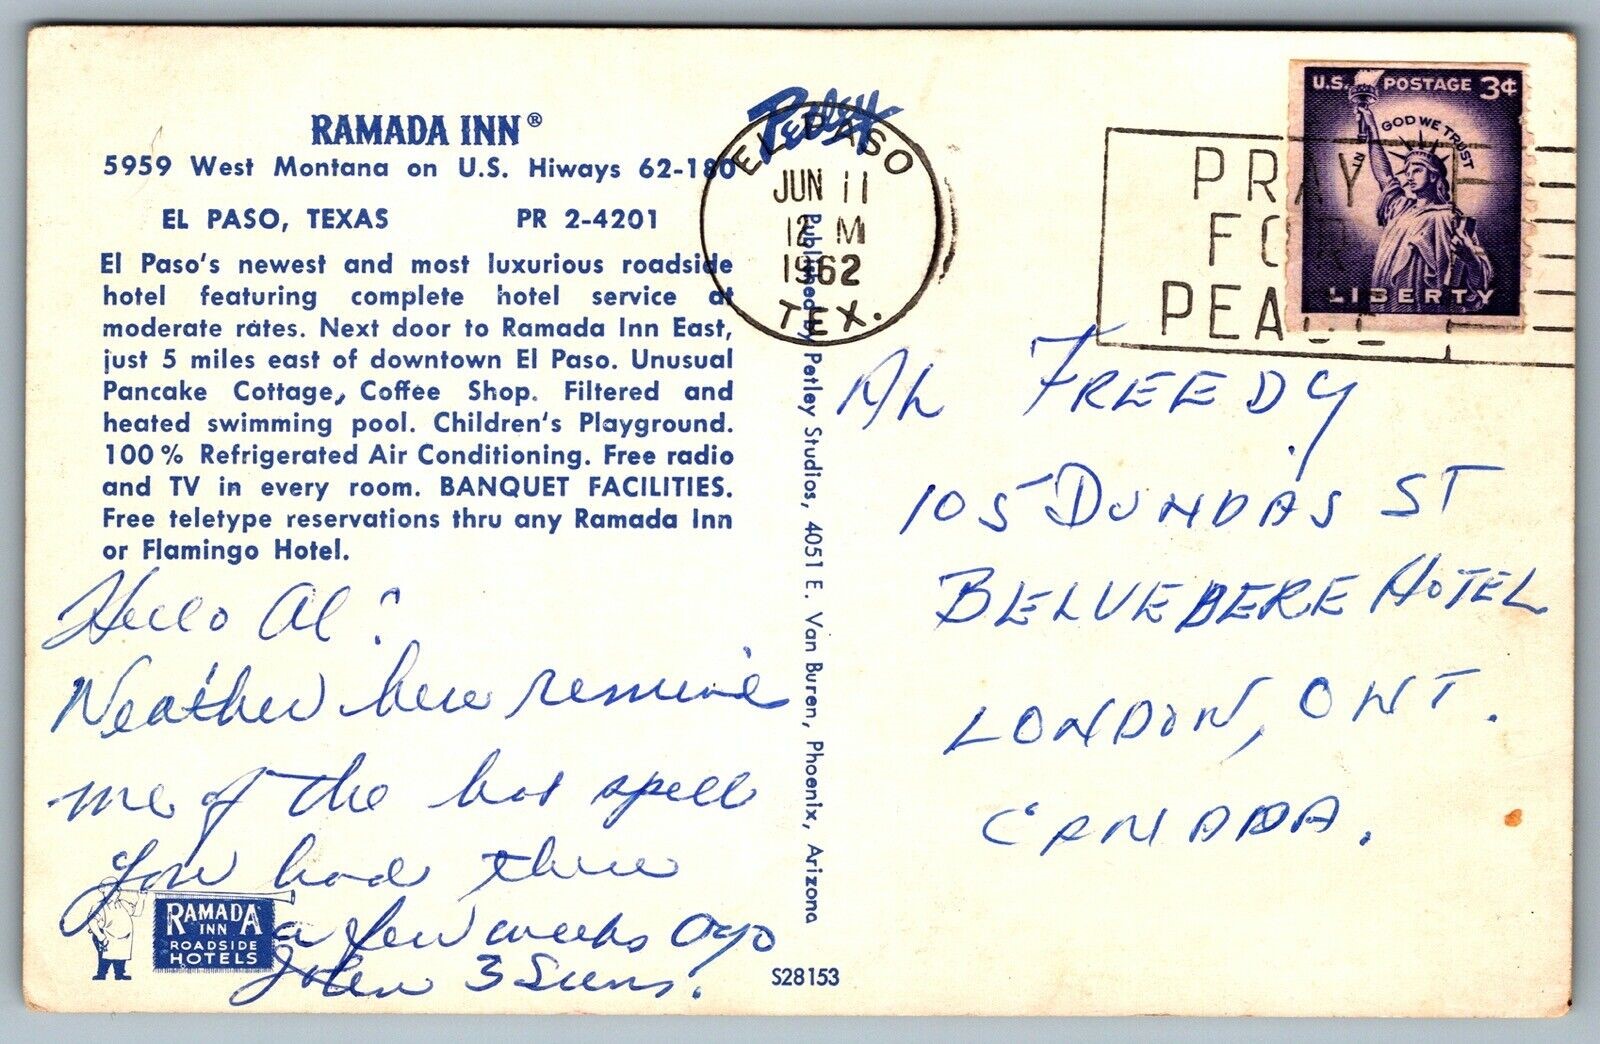 RAMADA INN®
5959 West Montana on U.S. Hiways 62-180
EL PASO, TEXAS PR 2-4201
El Paso's newest and most luxurious roadside
hotel featuring complete hotel service at
moderate rates. Next door to Ramada Inn East,
just 5 miles east of downtown El Paso. Unusual
Pancake Cottage, Coffee Shop. Filtered and
heated swimming pool. Children's Playground.
100% Refrigerated Air Conditioning. Free radio
and TV in every room. BANQUET FACILITIES.
Free teletype reservations thru any Ramada Inn
or Flamingo Hotel.
Hello Al:
Weather here remind
me of the hot spell
you had there
a few weeks ago
John
RAMADA
INN
ROADSIDE
HOTELS
S28153
Petley
Published by Petley Studios, 4051 E. Van Buren, Phoenix, Arizona
EL PASO
JUN 11
12 M
1962
TEX.
PRAY
FOR
PEACE
U.S. POSTAGE 3¢
IN GOD WE TRUST
LIBERTY
AL FREEDY
105 DUNDAS ST
BELVEDERE HOTEL
LONDON, ONT.
CANADA.